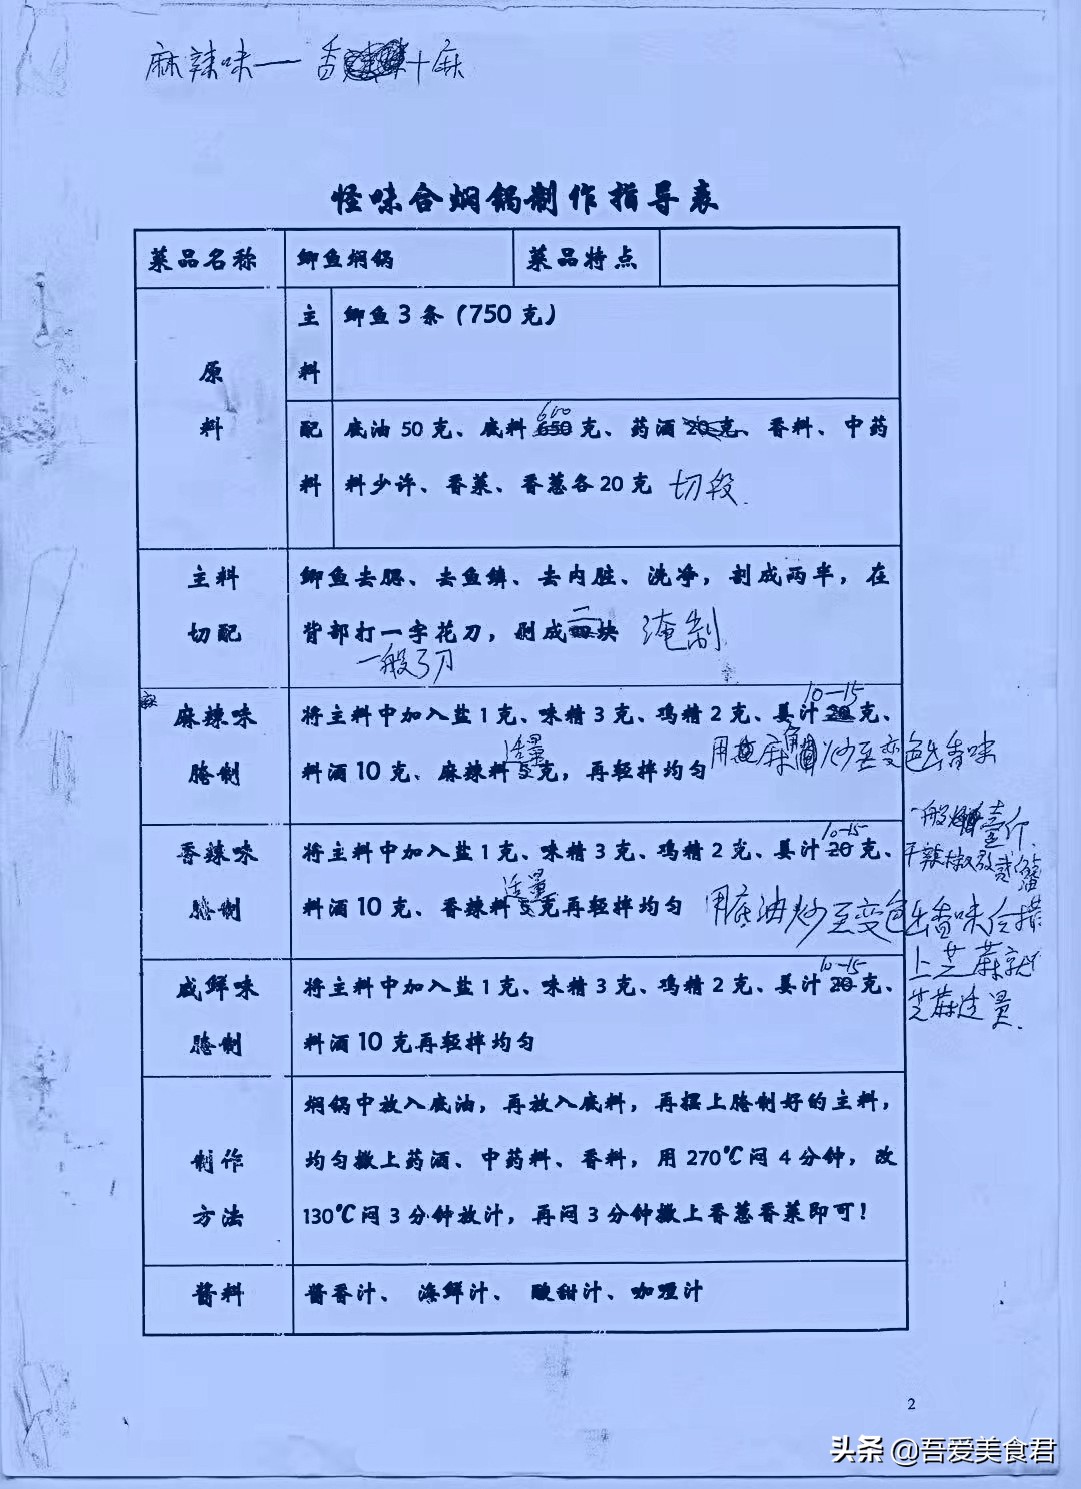 麻辣味一香 十麻
怪味合焖锅制作指导表
菜品名称 鲫鱼焖锅 菜品特点
原料 主料 鲫鱼3条（750克）
600
配料 底油50克、底料650克、药酒20克、香料、中药
料少许、香菜、香葱各20克 切段.
主料 鲫鱼去腮、去鱼鳞、去内脏、洗净，剖成两半，在
切配 背部打一字花刀，剁成二块 淹制.
一般3刀
10-15
麻辣味 将主料中加入盐1克、味精3克、鸡精2克、姜汁20克、
适量
腌制 料酒10克、麻辣料5克，再轻拌均匀 用 麻 油炒至变色出香味
10-15
香辣味 将主料中加入盐1克、味精3克、鸡精2克、姜汁20克、
一般 壹斤.
干辣椒放贰
适量
腌制 料酒10克、香辣料5克再轻拌均匀 用底油炒至变色出香味后撒
上芝蔴就
芝蔴适量.
10-15
咸鲜味 将主料中加入盐1克、味精3克、鸡精2克、姜汁20克、
腌制 料酒10克再轻拌均匀
焖锅中放入底油，再放入底料，再摆上腌制好的主料，
制作 均匀撒上药酒、中药料、香料，用270℃闷4分钟，改
方法 130℃闷3分钟放汁，再闷3分钟撒上香葱香菜即可！
酱料 酱香汁、 海鲜汁、 酸甜汁、咖喱汁
2
头条 @吾爱美食君